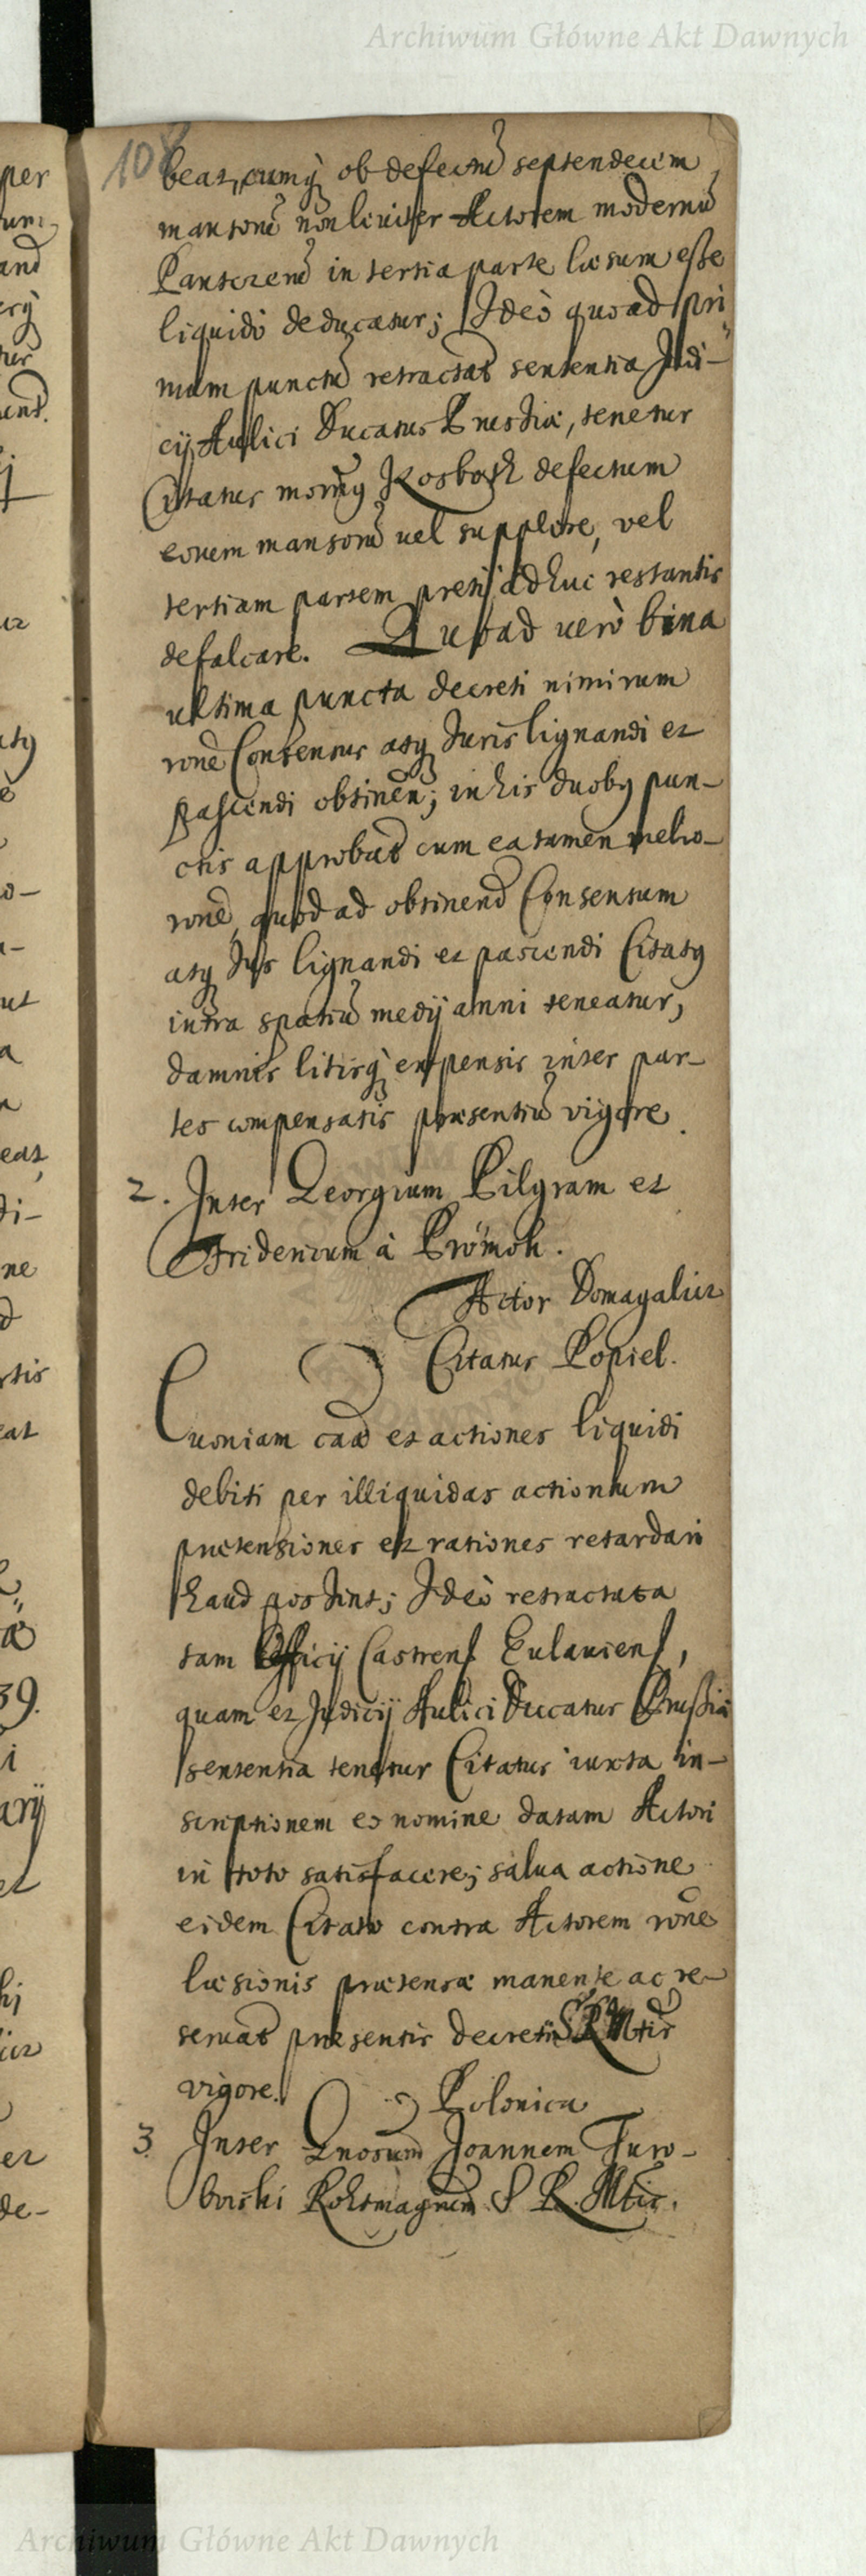 Archiwum Główne Akt Dawnych
108
beat, cumq́ ob defectū septendecim
mansorū non leviter Actorem modernū
Pantzerem in tertia parte læsum esse
liquidò deducatur; Ideò quoad pri
mum punctū retractatâ sententia Judi-
cij Aulici Ducatus Prussiæ, tenetur
Citatus Kosboth defectum
eorum mansorū vel supplere, vel
tertiam partem pretij adhuc restantis
defalcare. Quoad verò bina
ultima puncta decreti nimirum
rōne Consensus atq Juris lignandi et
pascendi obtinēn; in his duobq pun-
ctis approbatâ cum ea tamen melio-
rōne, quod ad obtinend Consensum
atq Jus lignandi et pascendi Citatq
intra spatiū medij anni teneatur,
damnis litisq́ expensis inter par-
tes compensatis præsentiū vigore.
2. Inter Georgium Pilgram et
Fridericum à Prömok.
Actor Domagalicz
Citatus Popiel.
Quoniam caæ et actiones liquidi
debiti per illiquidas actionum
prætensiones et rationes retardari
haud possint; Ideò retractata
tam Officij Castrens Eulaviens,
quam et Judicij Aulici Ducatus Prussiæ
sententia tenetur Citatus iuxta in-
scriptionem eo nomine datam Actori
in toto satisfacere; salva actione
eidem Citato contra Actorem rōne
læsionis prætensæ manente ac re-
servatâ præsentis decreti S R Mtis
vigore.
Polonica
3 Inter Gnosum Joannem Turo-
borski Rohtmagrum S R. Mtis.
Archiwum Główne Akt Dawnych